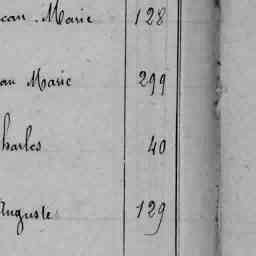 ean Marie 128
an Marie 299
harles 40
Auguste 129